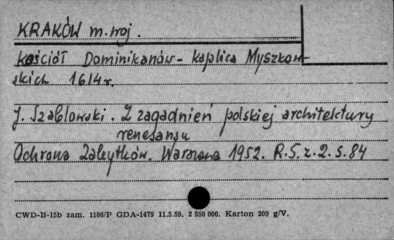 KRAKÓW m. woj.
kościół Dominikanów - kaplica Myszkow-
skich 1614 r.
J. Szablowski. Z zagadnień polskiej architektury
renesansu
Ochrona Zabytków. Warszawa 1952. R.5. z.2. s.84
CWD-B-15b zam. 1106/P GDA-1479 11.5.59. 2 550 000. Karton 200 g/V.